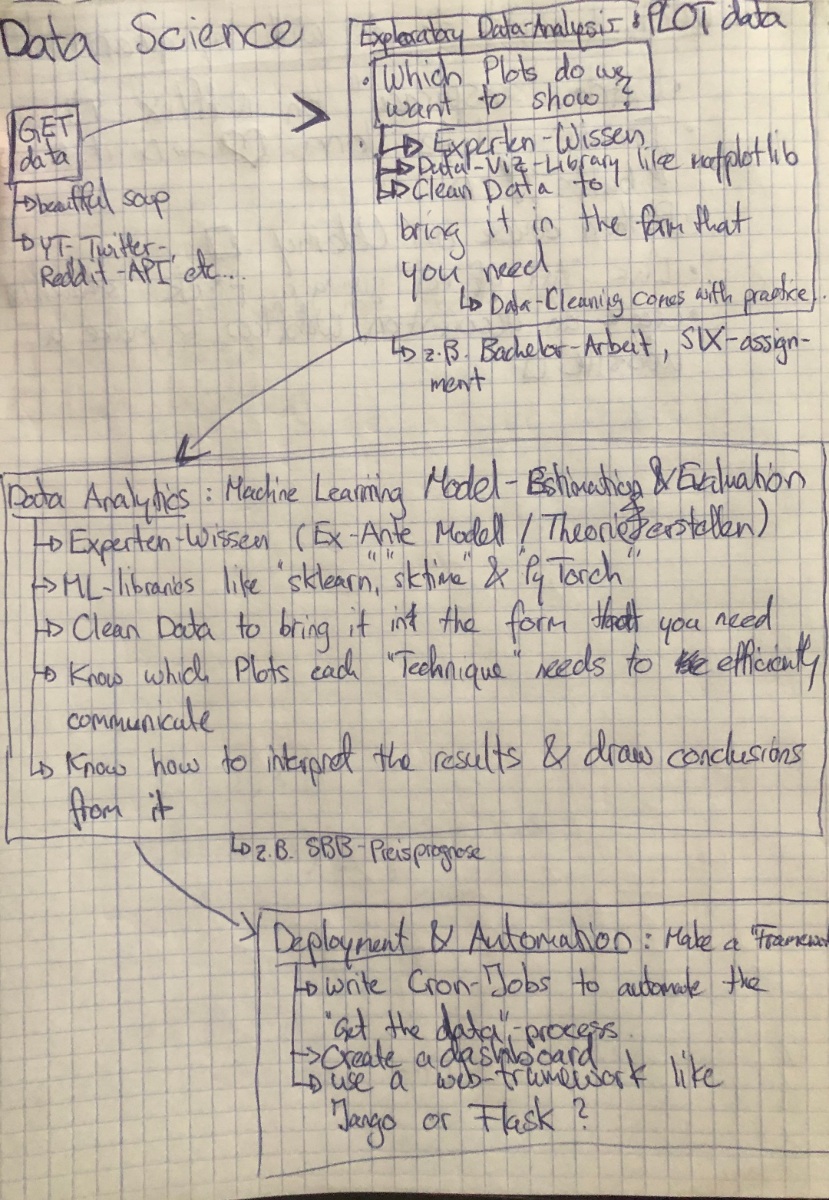 Data Science
GET
data
↳ beautiful soup
↳ YT-Twitter-,
Reddit-API etc...
Exploratory Data-Analysis : PLOT data
· Which Plots do we
want to show ?
↳ Experten-Wissen
↳ Data-Viz-Library like matplotlib
↳ Clean Data to
bring it in the form that
you need
↳ Data-Cleaning comes with practice.
↳ z.B. Bachelor-Arbeit, SIX-assign-
ment
Data Analytics : Machine Learning Model-Estimating & Evaluation
↳ Experten-Wissen (Ex-Ante Modell / Theorie erstellen)
↳ ML-libraries like "sklearn", "sktime" & "PyTorch"
↳ Clean Data to bring it int the form that you need
↳ Know which Plots each "Technique" needs to efficiently
communicate
↳ Know how to interpret the results & draw conclusions
from it
↳ z.B. SBB-Preisprognose
Deployment & Automation : Make a "Framewor
↳ Write Cron-Jobs to automate the
"Get the data"-process
↳ Create a dashboard
↳ use a web-framework like
Jango or Flask ?